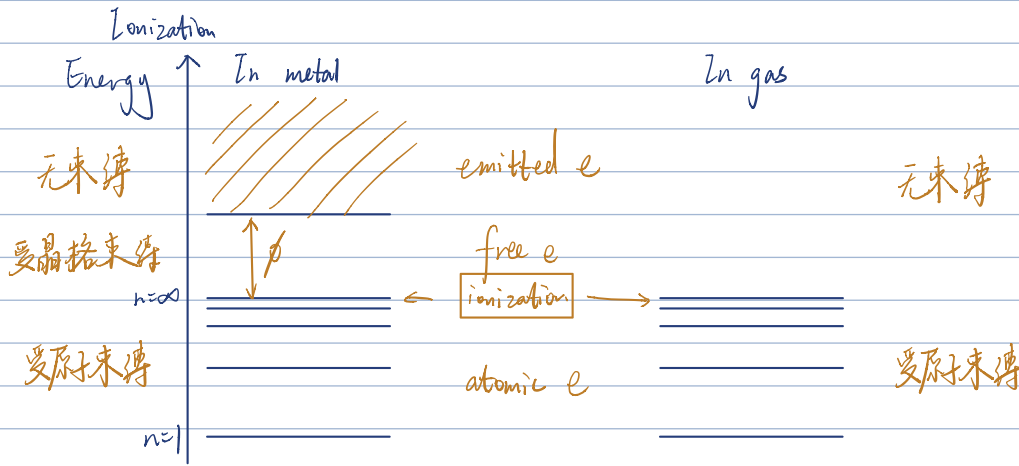 Ionization
Energy
In metal
In gas
无束缚
emitted e
无束缚
受晶格束缚
ϕ
free e
n=∞
ionization
受原子束缚
atomic e
受原子束缚
n=1